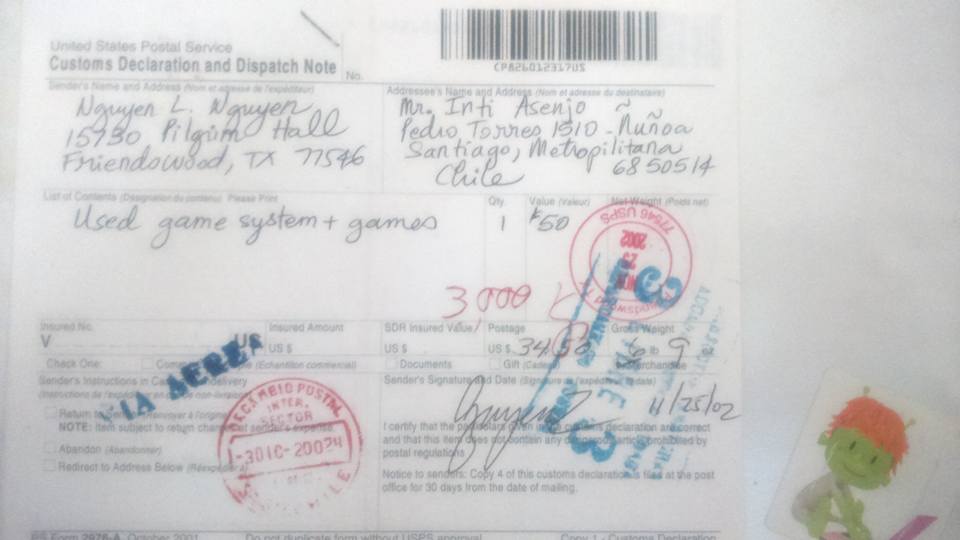 United States Postal Service
Customs Declaration and Dispatch Note
No.
CP826012317US
Sender's Name and Address (Nom et adresse de l'expéditeur)
Nguyen L. Nguyen
15730 Pilgrim Hall
Friendswood, TX 77546
Addressee's Name and Address (Nom et adresse du destinataire)
Mr. Inti Asenjo
Pedro Torres 1510 - Ñuñoa
Santiago, Metropilitana
6850514
Chile
List of Contents (Désignation du contenu) Please Print
Qty.
Value (Valeur)
Net Weight (Poids net)
Used game system + games
1
$50
77546 USPS
2002
25
NOV
3,000
Insured No.
V
US
Insured Amount
US $
SDR Insured Value
US $
Postage
US $ 34.50
Gross Weight
6 lb 9
Check One:
(Echantillon commercial)
Documents
Gift
VIA AEREA
Sender's Instructions in Case of Non-delivery
Return to
NOTE: Item subject to return charges at sender's expense.
Abandon (Abandonner)
Redirect to Address Below
CAMBIO POSTAL
INTER.
SECTOR
-3 DIC-2002
Sender's Signature and Date
11/25/02
I certify that the particulars given in this customs declaration are correct
and that this item does not contain any dangerous article prohibited by
postal regulations
Notice to senders: Copy 4 of this customs declaration is filed at the post
office for 30 days from the date of mailing.
PS Form 2976-A, October 2001
Do not duplicate form without USPS approval
Copy 1 - Customs Declaration